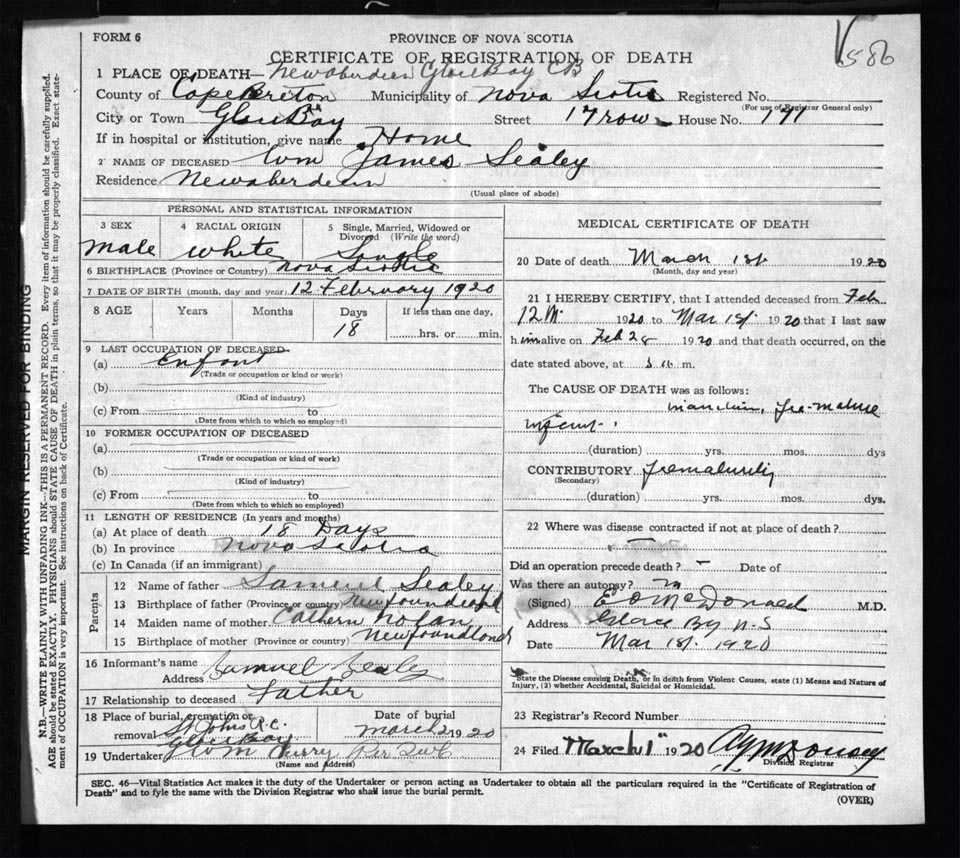 FORM 6
PROVINCE OF NOVA SCOTIA
586
CERTIFICATE OF REGISTRATION OF DEATH
1 PLACE OF DEATH— Newaberdeen Glace Bay CB
County of Cape Breton Municipality of Nova Scotia Registered No.
(For use of Registrar General only)
City or Town Glace Bay Street 17 row House No. 171
If in hospital or institution, give name Home
2 NAME OF DECEASED Wm James Sealey
Residence Newaberdeen
(Usual place of abode)
PERSONAL AND STATISTICAL INFORMATION
3 SEX 4 RACIAL ORIGIN 5 Single, Married, Widowed or
Divorced (Write the word)
male white Single
6 BIRTHPLACE (Province or Country) Nova Scotia
7 DATE OF BIRTH (month, day and year) 12 February 1920
8 AGE Years Months Days If less than one day,
18 hrs. or min.
9 LAST OCCUPATION OF DECEASED
(a) Enfant
(Trade or occupation or kind or work)
(b)
(Kind of industry)
(c) From to
(Date from which to which so employed)
10 FORMER OCCUPATION OF DECEASED
(a)
(Trade or occupation or kind of work)
(b)
(Kind of industry)
(c) From to
(Date from which to which so employed)
11 LENGTH OF RESIDENCE (In years and months)
(a) At place of death 18 Days
(b) In province Nova Scotia
(c) In Canada (if an immigrant)
Parents
12 Name of father Samuel Sealey
13 Birthplace of father (Province or country) Newfoundland
14 Maiden name of mother Cathern Nolan
15 Birthplace of mother (Province or country) Newfoundland
16 Informant's name Samuel Sealey
Address
17 Relationship to deceased Father
18 Place of burial, cremation or Date of burial
removal St Johns R.C. March 2 1920
Glace Bay
19 Undertaker
(Name and Address)
MEDICAL CERTIFICATE OF DEATH
20 Date of death March 1st 1920
(Month, day and year)
21 I HEREBY CERTIFY, that I attended deceased from Feb
12 1920 to Mar 1st 1920 that I last saw
him alive on Feb 28 1920 and that death occurred, on the
date stated above, at m.
The CAUSE OF DEATH was as follows:
premature
infant.
(duration) yrs. mos. dys
CONTRIBUTORY Prematurity
(Secondary)
(duration) yrs. mos. dys.
22 Where was disease contracted if not at place of death?
Did an operation precede death? – Date of
Was there an autopsy?
(Signed) E O McDonald M.D.
Address Glace Bay N.S
Date Mar 1st. 1920
State the Disease causing Death, or in death from Violent Causes, state (1) Means and Nature of
Injury, (2) whether Accidental, Suicidal or Homicidal.
23 Registrar's Record Number
24 Filed March 1" 1920
Division Registrar
SEC. 46—Vital Statistics Act makes it the duty of the Undertaker or person acting as Undertaker to obtain all the particulars required in the "Certificate of Registration of
Death" and to fyle the same with the Division Registrar who shall issue the burial permit.
(OVER)
MARGIN RESERVED FOR BINDING
N.B.—WRITE PLAINLY WITH UNFADING INK—THIS IS A PERMANENT RECORD. Every item of information should be carefully supplied.
AGE should be stated EXACTLY. PHYSICIANS should STATE CAUSE OF DEATH in plain terms, so that it may be properly classified. Exact state-
ment of OCCUPATION is very important. See instructions on back of Certificate.